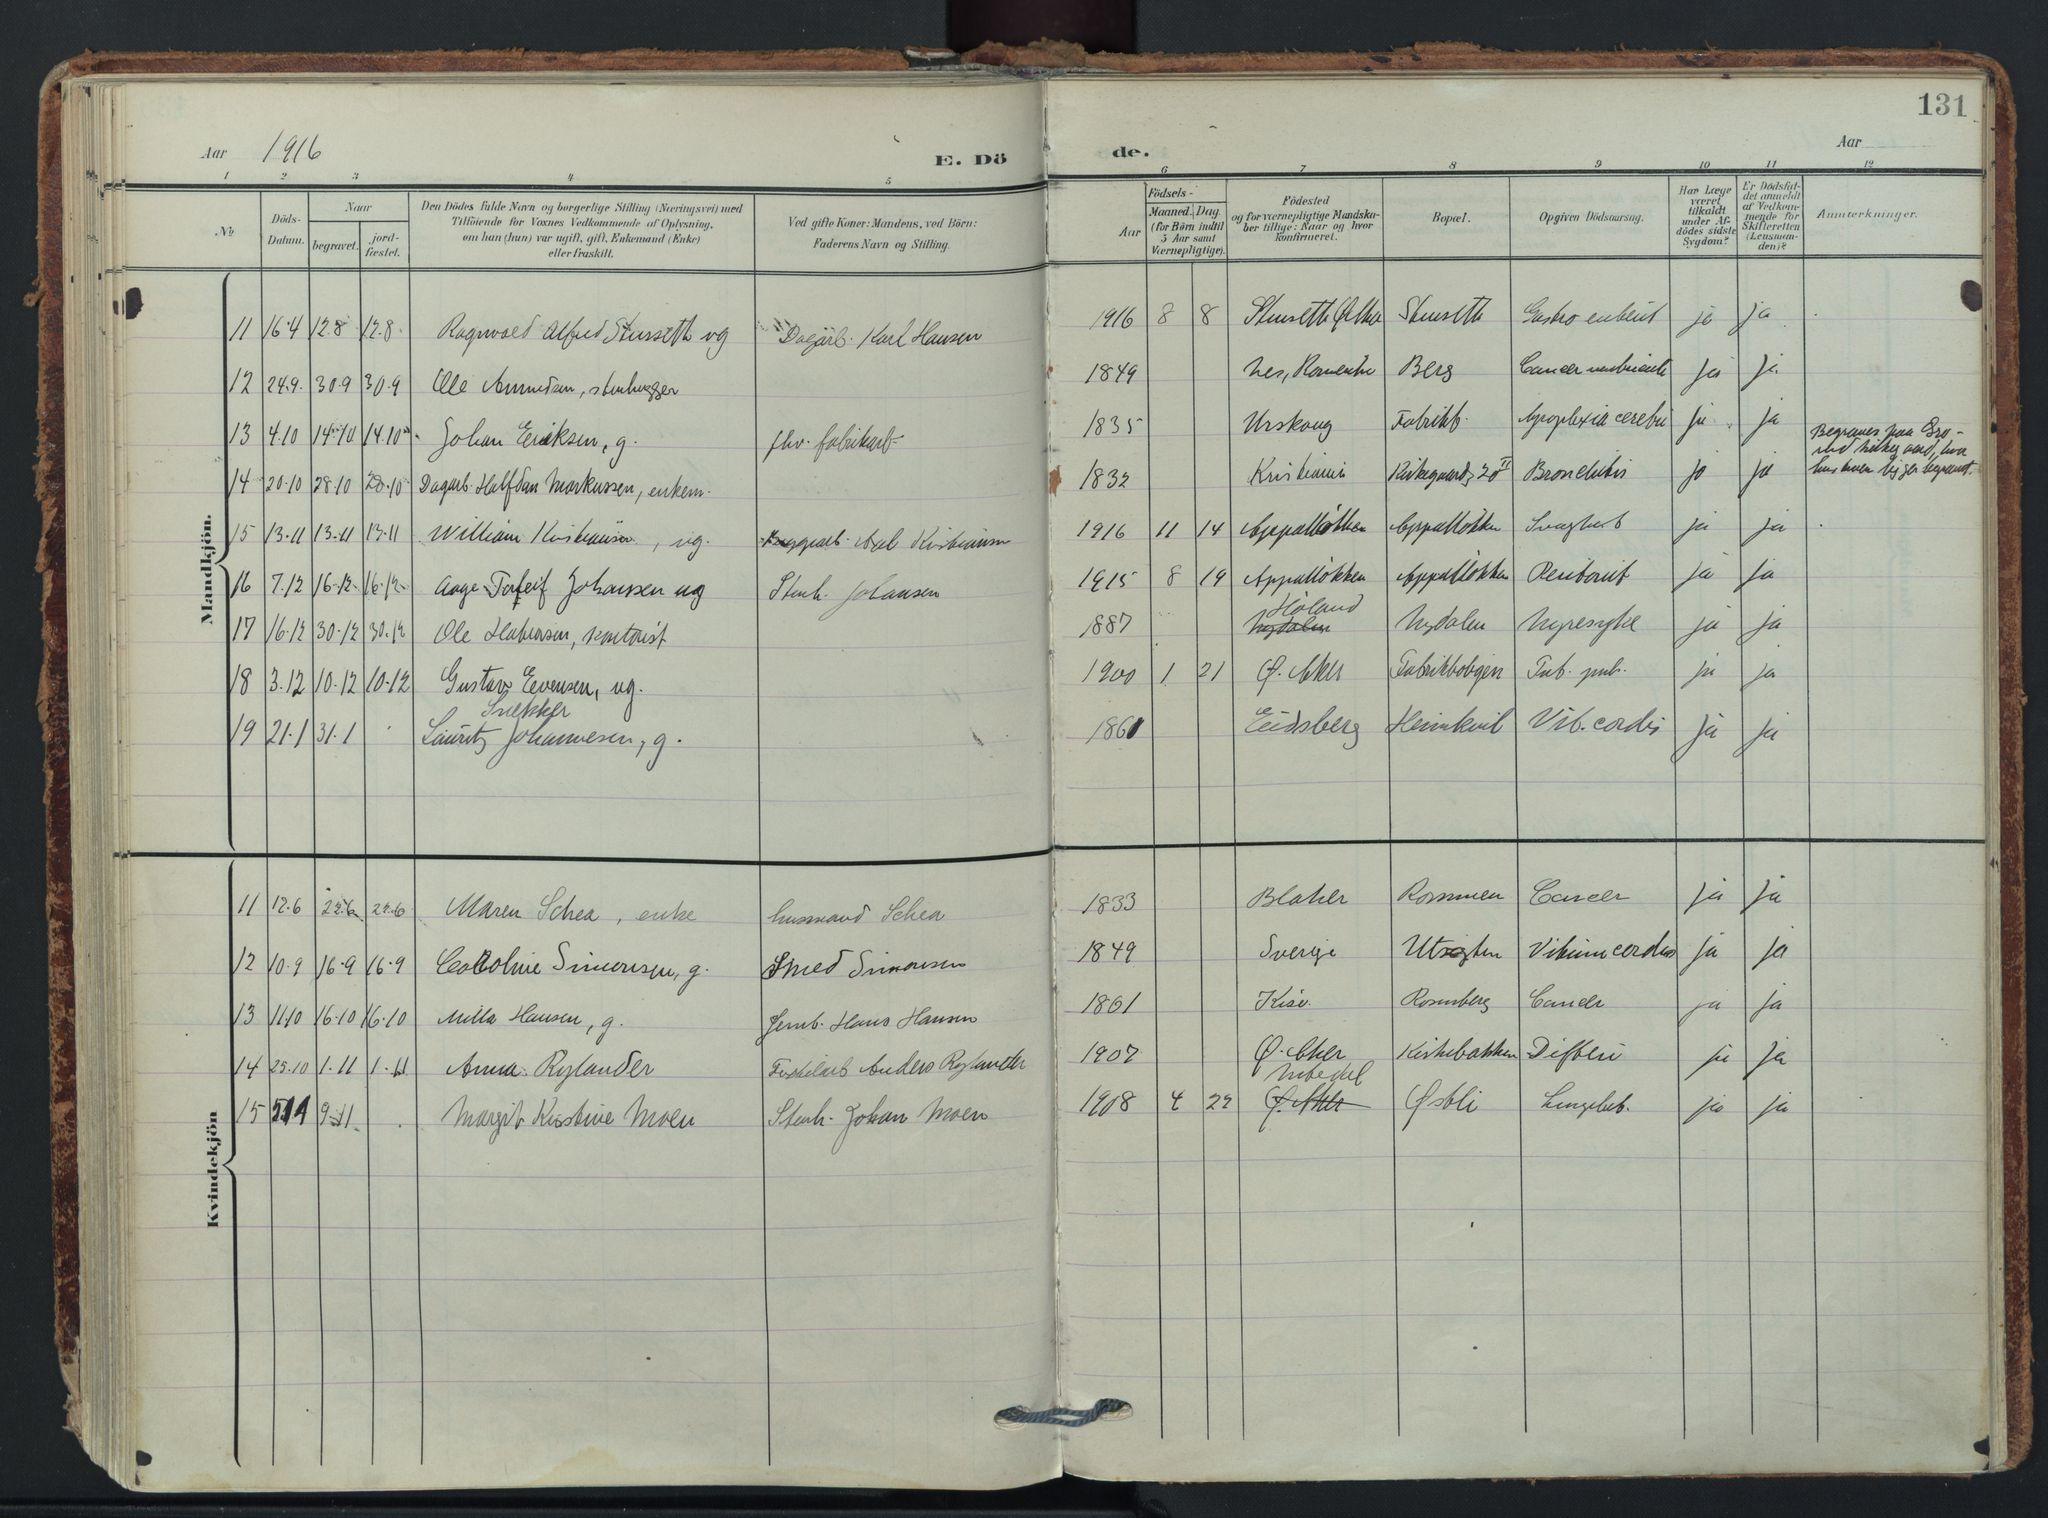 131
Aar 1916
E. Dö de.
Aar
1 2 3 4 5 6 7 8 9 10 11 12
No
Döds-Datum.
Naar
begravet.
jord-fæstet.
Den Dödes fulde Navn og borgerlige Stilling (Næringsvei) med
Tilföiende for Voxnes Vedkommende af Oplysning,
om han (hun) var ugift, gift, Enkemand (Enke)
eller fraskilt.
Ved gifte Koner: Mandens, ved Börn:
Faderens Navn og Stilling.
Födsels-
Aar
Maaned. Dag.
(for Börn indtil
5 Aar samt
Værnepligtige).
Födested
og for værnepligtige Mandska-
ber tillige: Naar og hvor
konfirmeret.
Bopæl.
Opgiven Dödsaarsag.
Har Læge
været
tilkaldt
under Af-
dödes sidste
Sygdom?
Er Dödsfal-
det anmeldt
af Vedkom-
mende for
Skifteretten
(Lensman-
den)?
Anmærkninger.
Mandkjön.
11 16.4 12.8 12.8. Ragnvald Alfred Stusseth ug Dagarb. Karl Hansen 1916 8 8 ja ja
12 24.9. 30.9 30.9 Ole Amundsen, stenhugger 1849 Nes, Romerike Berg Cancer ja ja
13 4.10 14.10 14.10 Johan Eriksen, g. fhv. fabrikarb 1835 Urskoug Fabrikk. Apoplexia cerebri ja ja
14 20.10 28.10 28.10 Dagarb. Halfdan Markussen, enkem. 1832 Kristiania Kirkegaardsg 20 II Bronchitis ja ja Begraves paa Gro-
rud kirkegaard, hvor
hustruen ligger begravet.
15 13.11 13.11 13.11 William Kristiansen, ug. Axel Kristiansen 1916 11 14 Appalløkken Appalløkken Svaghet ja ja
16 7.12 16.12. 16.12 Aage Torleif Johansen ug Stenh. Johansen 1915 8 19 Appalløkken Appalløkken Peritonit ja ja
Høland
17 16.12 30.12 30.12 Ole Halvorsen, kontorist 1887 Nydalen Nydalen Nyresyke ja ja
18 3.12 10.12 10.12 Gustav Evensen, ug. 1900 1 21 Ø. Aker Fabrikbolygen Tub. pulm. ja ja
Snekker
19 21.1 31.1 Lauritz Johannesen, g. 1861 Eidsberg Heimkvil Vit. cordis ja ja
Kvindekjön
11 12.6 22.6 22.6 Maren Schea, enke husmand Schea 1833 Blaker Rommen Cancer ja ja
12 10.9 16.9 16.9 Caroline Simonsen, g. Smed Simonsen 1849 Sverige Utsigten Vitium cordis ja ja
13 11.10 16.10 16.10 Milla Hansen, g. Jernb. Hans Hansen 1861 Rosenberg Cancer ja ja
14 25.10 1.11 1.11 Anna Rylander Anders Rylander 1907 Ø. Aker Kirkebakken Difteri ja ja
15 9.11 Margit Kristine Moen Stenh. Johan Moen 1908 4 22 Ø. Aker Østli Lungebet. ja ja